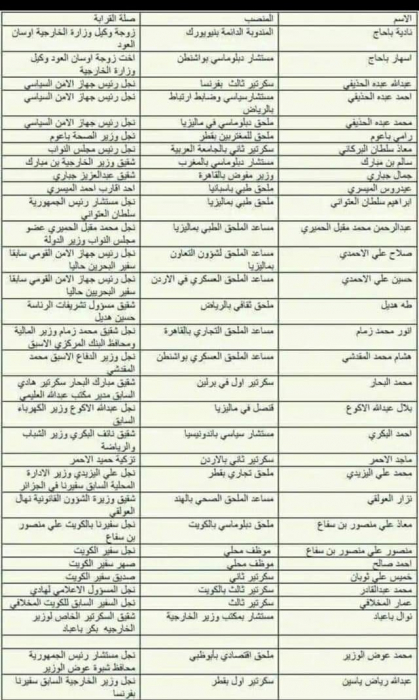 الاسم المنصب صلة القرابة
نادية باحاج المندوبة الدائمة بنيويورك زوجة وكيل وزارة الخارجية اوسان
العود
اسهار باحاج مستشار دبلوماسي بواشنطن اخت زوجة اوسان العود وكيل
وزارة الخارجية
عبدالله عبده الحذيفي سكرتير ثالث بفرنسا نجل رئيس جهاز الامن السياسي
احمد عبده الحذيفي مستشارسياسي وضابط ارتباط نجل رئيس جهاز الامن السياسي
بالرياض
محمد عبده الحذيفي ملحق دبلوماسي في ماليزيا نجل رئيس جهاز الامن السياسي
رامي باعوم ملحق للمغتربين بقطر نجل وزير الصحة باعوم
معاذ سلطان البركاني سكرتير ثاني بالجامعة العربية نجل رئيس مجلس النواب
سالم بن مبارك مستشار دبلوماسي بالمغرب شقيق وزير الخارجية بن مبارك
جمال جباري وزير مفوض بالقاهرة شقيق عبدالعزيز جباري
عيدروس الميسري ملحق طبي باسبانيا احد اقارب احمد الميسري
ابراهيم سلطان العتواني ملحق طبي بماليزيا نجل مستشار رئيس الجمهورية
سلطان العتواني
عبدالرحمن محمد مقبل الحميري مساعد الملحق الطبي بماليزيا نجل محمد مقبل الحميري عضو
مجلس النواب وزير الدولة
صلاح علي الاحمدي مساعد الملحق لشؤون التعاون نجل رئيس جهاز الامن القومي سابقا
بماليزيا سفير البحرين حاليا
حسين علي الاحمدي مساعد الملحق العسكري في الاردن نجل رئيس جهاز الامن القومي سابقا
سفير البحريين حاليا
طه هديل ملحق ثقافي بالرياض شقيق مسؤول تشريفات الرئاسة
حسين هديل
انور محمد زمام مساعد الملحق التجاري بالقاهرة نجل شقيق محمد زمام وزير المالية
ومحافظ البنك المركزي الاسبق
هشام محمد المقدشي مساعد الملحق العسكري بواشنطن نجل وزير الدفاع الاسبق محمد
المقدشي
محمد البحار سكرتير اول في برلين شقيق مبارك البحار سكرتير هادي
السابق مدير مكتب عبدالله العليمي
بلال عبدالله الاكوع قنصل في ماليزيا نجل عبدالله الاكوع وزير الكهرباء
السابق
احمد البكري مستشار سياسي باندونيسيا شقيق نائف البكري وزير الشباب
والرياضة
ماجد الاحمر سكرتير ثاني بالاردن تزكية حميد الاحمر
محمد علي اليزيدي ملحق تجاري بقطر نجل علي اليزيدي وزير الادارة
المحلية السابق سفيرنا في الجزائر
نزار العولقي مساعد الملحق الصحي بالهند شقيق وزيرة الشؤون القانونية نهال
العولقي
معاذ علي منصور بن سفاع ملحق دبلوماسي بالكويت نجل سفيرنا بالكويت علي منصور
بن سفاع
منصور علي منصور بن سفاع موظف محلي نجل سفير الكويت
احمد صالح موظف محلي صهر سفير الكويت
خميس علي ثوبان سكرتير ثاني صديق سفير الكويت
محمد عبدالقادر سكرتير ثالث بالكويت نجل المسؤول الاعلامي لهادي
عمار المخلافي سكرتير ثالث نجل السفير السابق للكويت المخلافي
نوال باعباد مستشار بمكتب وزير الخارجية شقيق السكرتير الخاص لوزير
الخارجيه بكر باعباد
محمد عوض الوزير ملحق اقتصادي بابوظبي نجل مستشار رئيس الجمهورية
محافظ شبوة عوض الوزير
عبدالله رياض ياسين سكرتير اول بقطر نجل وزير الخارجية السابق سفيرنا
بفرنسا